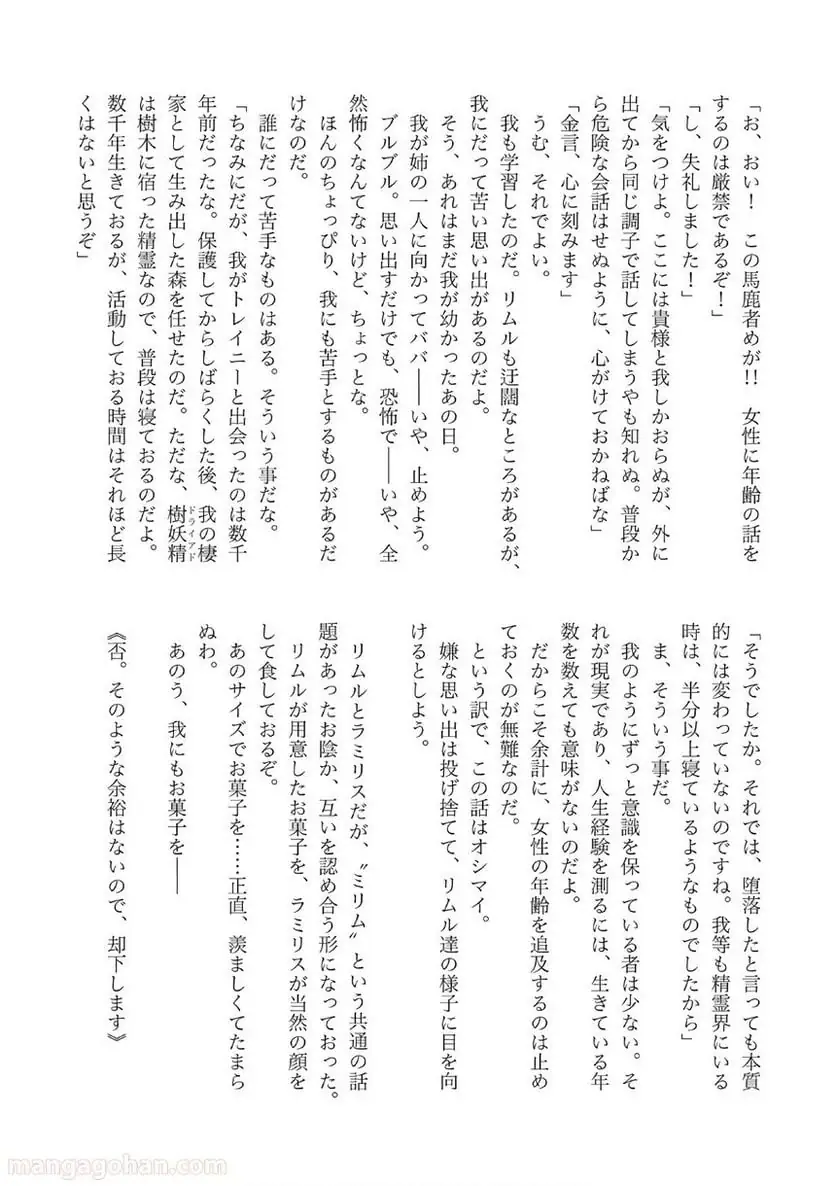 「お、おい！　この馬鹿者めが!!　女性に年齢の話を
するのは厳禁であるぞ！」
「し、失礼しました！」
「気をつけよ。ここには貴様と我しかおらぬが、外に
出てから同じ調子で話してしまうやも知れぬ。普段か
ら危険な会話はせぬように、心がけておかねばな」
「金言、心に刻みます」
うむ、それでよい。
我も学習したのだ。リムルも迂闊なところがあるが、
我にだって苦い思い出があるのだよ。
そう、あれはまだ我が幼かったあの日。
我が姉の一人に向かってババ――いや、止めよう。
ブルブル。思い出すだけでも、恐怖で――いや、全
然怖くなんてないけど、ちょっとな。
ほんのちょっぴり、我にも苦手とするものがあるだ
けなのだ。
誰にだって苦手なものはある。そういう事だな。
「ちなみにだが、我がトレイニーと出会ったのは数千
年前だったな。保護してからしばらくした後、我の棲
家として生み出した森を任せたのだ。ただな、樹妖精
ドライアド
は樹木に宿った精霊なので、普段は寝ておるのだよ。
数千年生きておるが、活動しておる時間はそれほど長
くはないと思うぞ」
「そうでしたか。それでは、堕落したと言っても本質
的には変わっていないのですね。我等も精霊界にいる
時は、半分以上寝ているようなものでしたから」
ま、そういう事だ。
我のようにずっと意識を保っている者は少ない。そ
れが現実であり、人生経験を測るには、生きている年
数を数えても意味がないのだよ。
だからこそ余計に、女性の年齢を追及するのは止め
ておくのが無難なのだ。
という訳で、この話はオシマイ。
嫌な思い出は投げ捨てて、リムル達の様子に目を向
けるとしよう。
リムルとラミリスだが、〝ミリム〟という共通の話
題があったお陰か、互いを認め合う形になっておった。
リムルが用意したお菓子を、ラミリスが当然の顔を
して食しておるぞ。
あのサイズでお菓子を……正直、羨ましくてたまら
ぬわ。
あのう、我にもお菓子を――
《否。そのような余裕はないので、却下します》
mangagohan.com